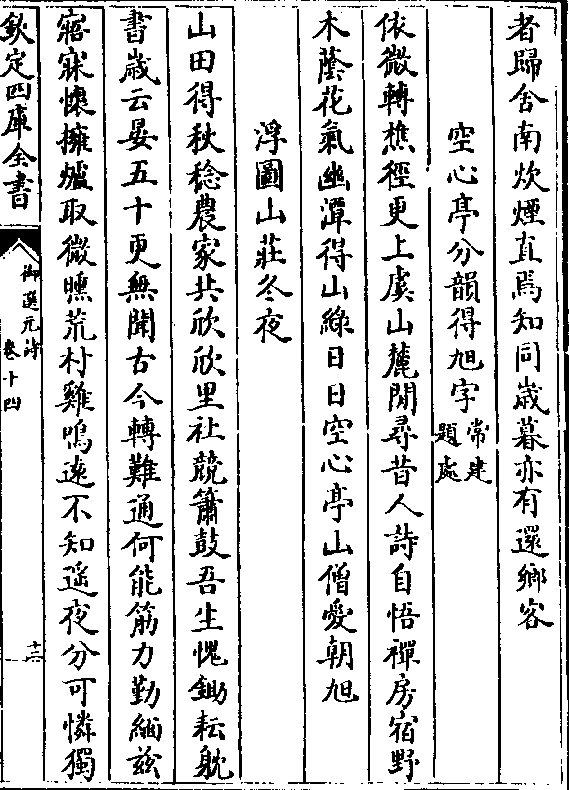 者歸舍南炊煙直焉知同歲暮亦有還鄉客
空心亭分韻得旭字常建題處
依微轉樵徑更上虞山麓閒尋昔人詩自悟禪房宿野
木蔭花氣幽潭得山綠日日空心亭山僧愛朝旭
浮圖山莊冬夜
山田得秋稔農家共欣欣里社競簫鼓吾生愧鋤耘躭
書歲云晏五十更無聞古今轉難通何能筋力勤緬兹
寤寐懷擁爐取微曛荒村雞鳴遠不知遥夜分可憐獨
欽定四庫全書
御選元詩
卷十四
十二